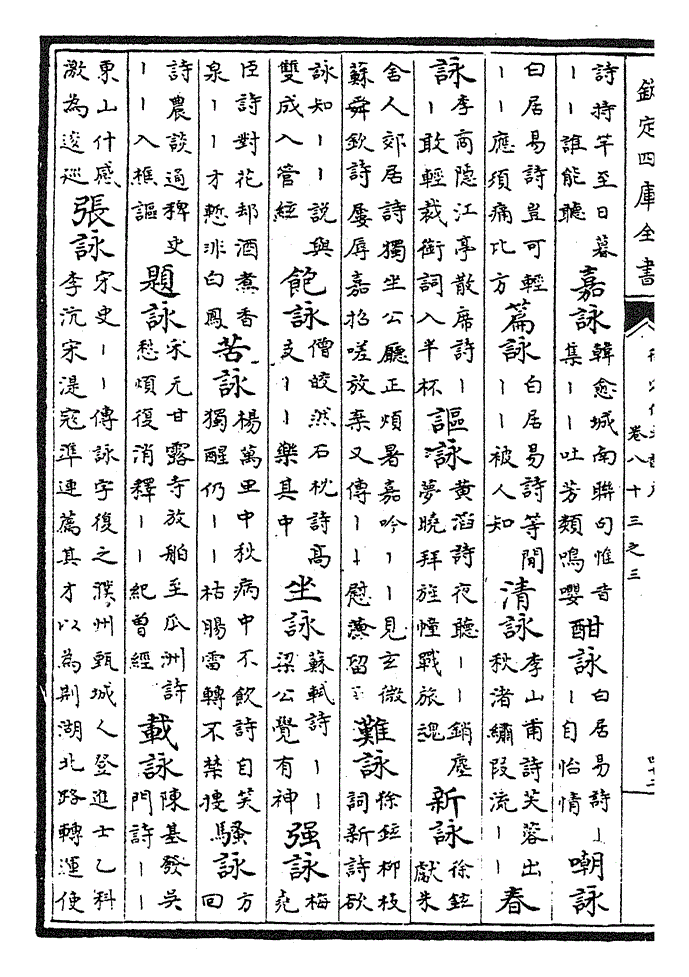 欽定四庫全書
卷八十三之三
詩持竿至日暮丨丨誰能聽 嘉詠 韓愈城南聯句惟昔集丨丨吐芳類鳴嚶 酣詠 白居易詩丨丨自怡情 嘲詠
白居易詩豈可輕丨丨應須痛比方 篇詠 白居易詩等閒丨丨被人知 清詠 李山甫詩芙蓉出秋渚繡段流丨丨 春
詠 李商隱江亭散席詩丨丨敢輕裁銜詞入半杯 謳詠 黄滔詩夜聽丨丨銷塵夢曉拜旌幢戰旅魂 新詠 徐鉉獻朱
舍人郊居詩獨坐公廳正煩暑嘉吟丨丨見玄微蘇舜欽詩屢辱嘉招嗟放棄又傳丨丨慰淹留 難詠 徐鉉柳枝詞新詩欲
詠知丨丨説與雙成入管絃 飽詠 僧皎然石枕詩高支丨丨樂其中 坐詠 蘇軾詩丨丨梁公覺有神 强詠 梅堯
臣詩對花却酒煮香泉丨丨才慙非白鳳 苦詠 楊萬里中秋病中不飲詩自笑獨醒仍丨丨枯腸雷轉不禁搜 騷詠 方回
詩農談通稗史丨丨入樵謳 題詠 宋元甘露寺放舶至瓜洲詩愁煩復消釋丨丨紀曽經 載詠 陳基發吳門詩丨丨
東山什感激為逡巡 張詠 宋史丨丨傳詠字復之濮州甄城人登進士乙科李沆宋湜寇準連薦其才以為荆湖北路轉運使